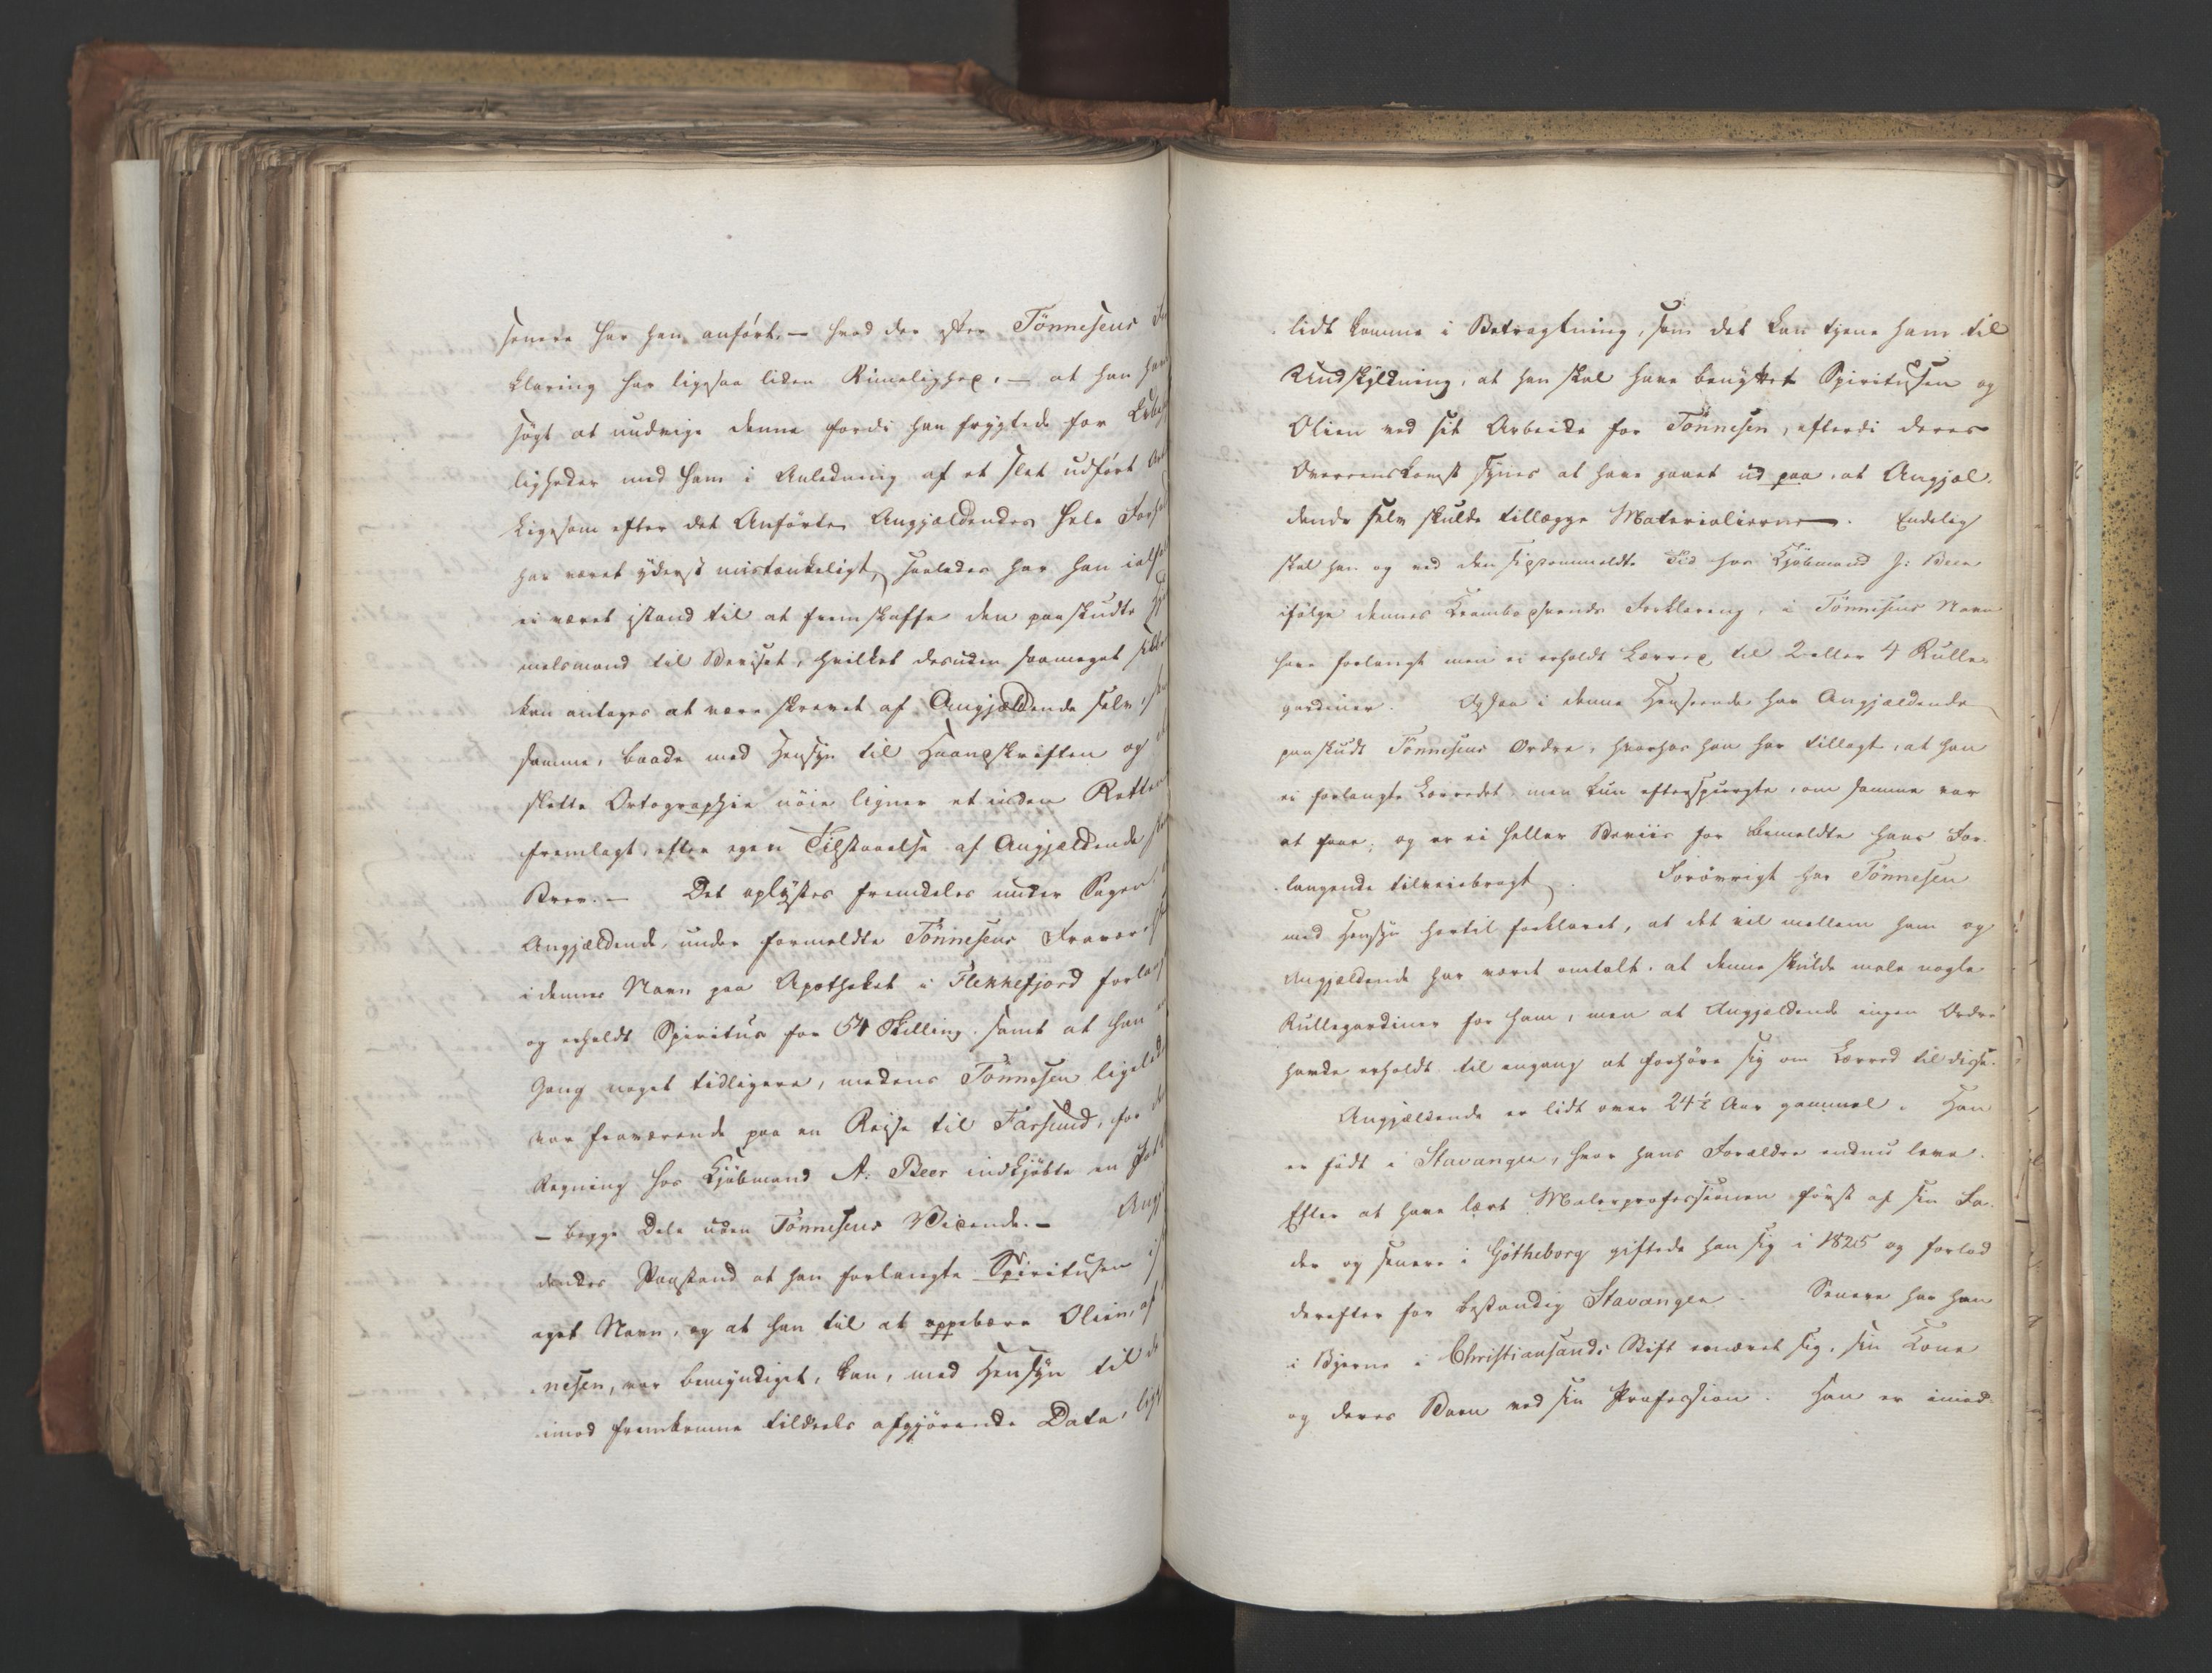 senere har han anført, – hvad der efter Tönnesens
klaring har ligesaa liden Rimelighed, – at han
søgt at undvige denne fordi han frygtede for
ligheder med ham i Anledning af et slet udført
Ligesom efter det Anførte Angjældendes hele
har været yderst mistænkeligt, saaledes har han
ei været istand til at fremskaffe den paaskudte
melsmand til Beviset, hvilket desuden saameget
kan antages at være skrevet af Angjældende selv,
samme, baade med Hensyn til Haandskriften og
slette Ortographie nöie ligner et inden Retten
fremlagt, efter egen Tilstaaelse af Angjældende
Brev. – Det oplystes fremdeles under Sagen
Angjældende, under formeldte Tönnesens
i dennes Navn paa Apotheket i Flekkefjord
og erholdt Spiritus for 54 Skilling, samt at han
Gang noget tidligere, medens Tönnesen
var fraværende paa en Reise til Farsund, for
Regning hos Kjöbmand A. Beer indkjöbte en
– begge Dele uden Tönnesens Vidende. –
dendes Paastand at han forlangte Spiritusen
eget Navn, og at han til at oppebære Olien, af
nesen, var bemyndiget, kan, med Hensyn til
imod fremkomne tildeels afgjörende Data,
lidt komme i Betragtning, som det kan tjene ham til
Undskyldning, at han skal have benyttet Spiritusen og
Olien ved sit Arbeide for Tönnesen, efterdi deres
Overeenskomst synes at have gaaet ud paa, at Angjæl-
dende selv skulde tillægge Materialierne. Endelig
skal han og ved den sidstommeldte Tid hos Kjöbmand J. Beer
ifølge dennes Krambodsvends Forklaring, i Tönnesens Navn
have forlangt men ei erholdt Lærred til 2 eller 4 Rulle-
gardiner. Ogsaa i denne Henseende har Angjældende
paaskudt Tönnesens Ordre, hvorhos han har tillagt, at han
ei forlangte Lærredet, men kun efterspurgte, om samme var
at faae; og er ei heller Beviis for bemeldte hans For-
langende tilveiebragt. Forövrigt har Tönnesen
med Hensyn hertil forklaret, at det vel mellem ham og
Angjældende har været omtalt, at denne skulde male nogle
Rullegardiner for ham, men at Angjældende ingen Ordre
havde erholdt til engang at forhöre sig om Lærred til disse.
Angjældende er lidt over 24½ Aar gammel. Han
er födt i Stavanger, hvor hans Forældre endnu leve.
Efter at have lært Malerprofessionen först af sin Fa-
der og senere i Götheborg giftede han sig i 1825 og forlod
derefter for bestandig Stavanger. Senere har han
i Byerne i Christiansands Stift ernæret sig, sin Kone
og deres Barn ved sin Profession. Han er imod-